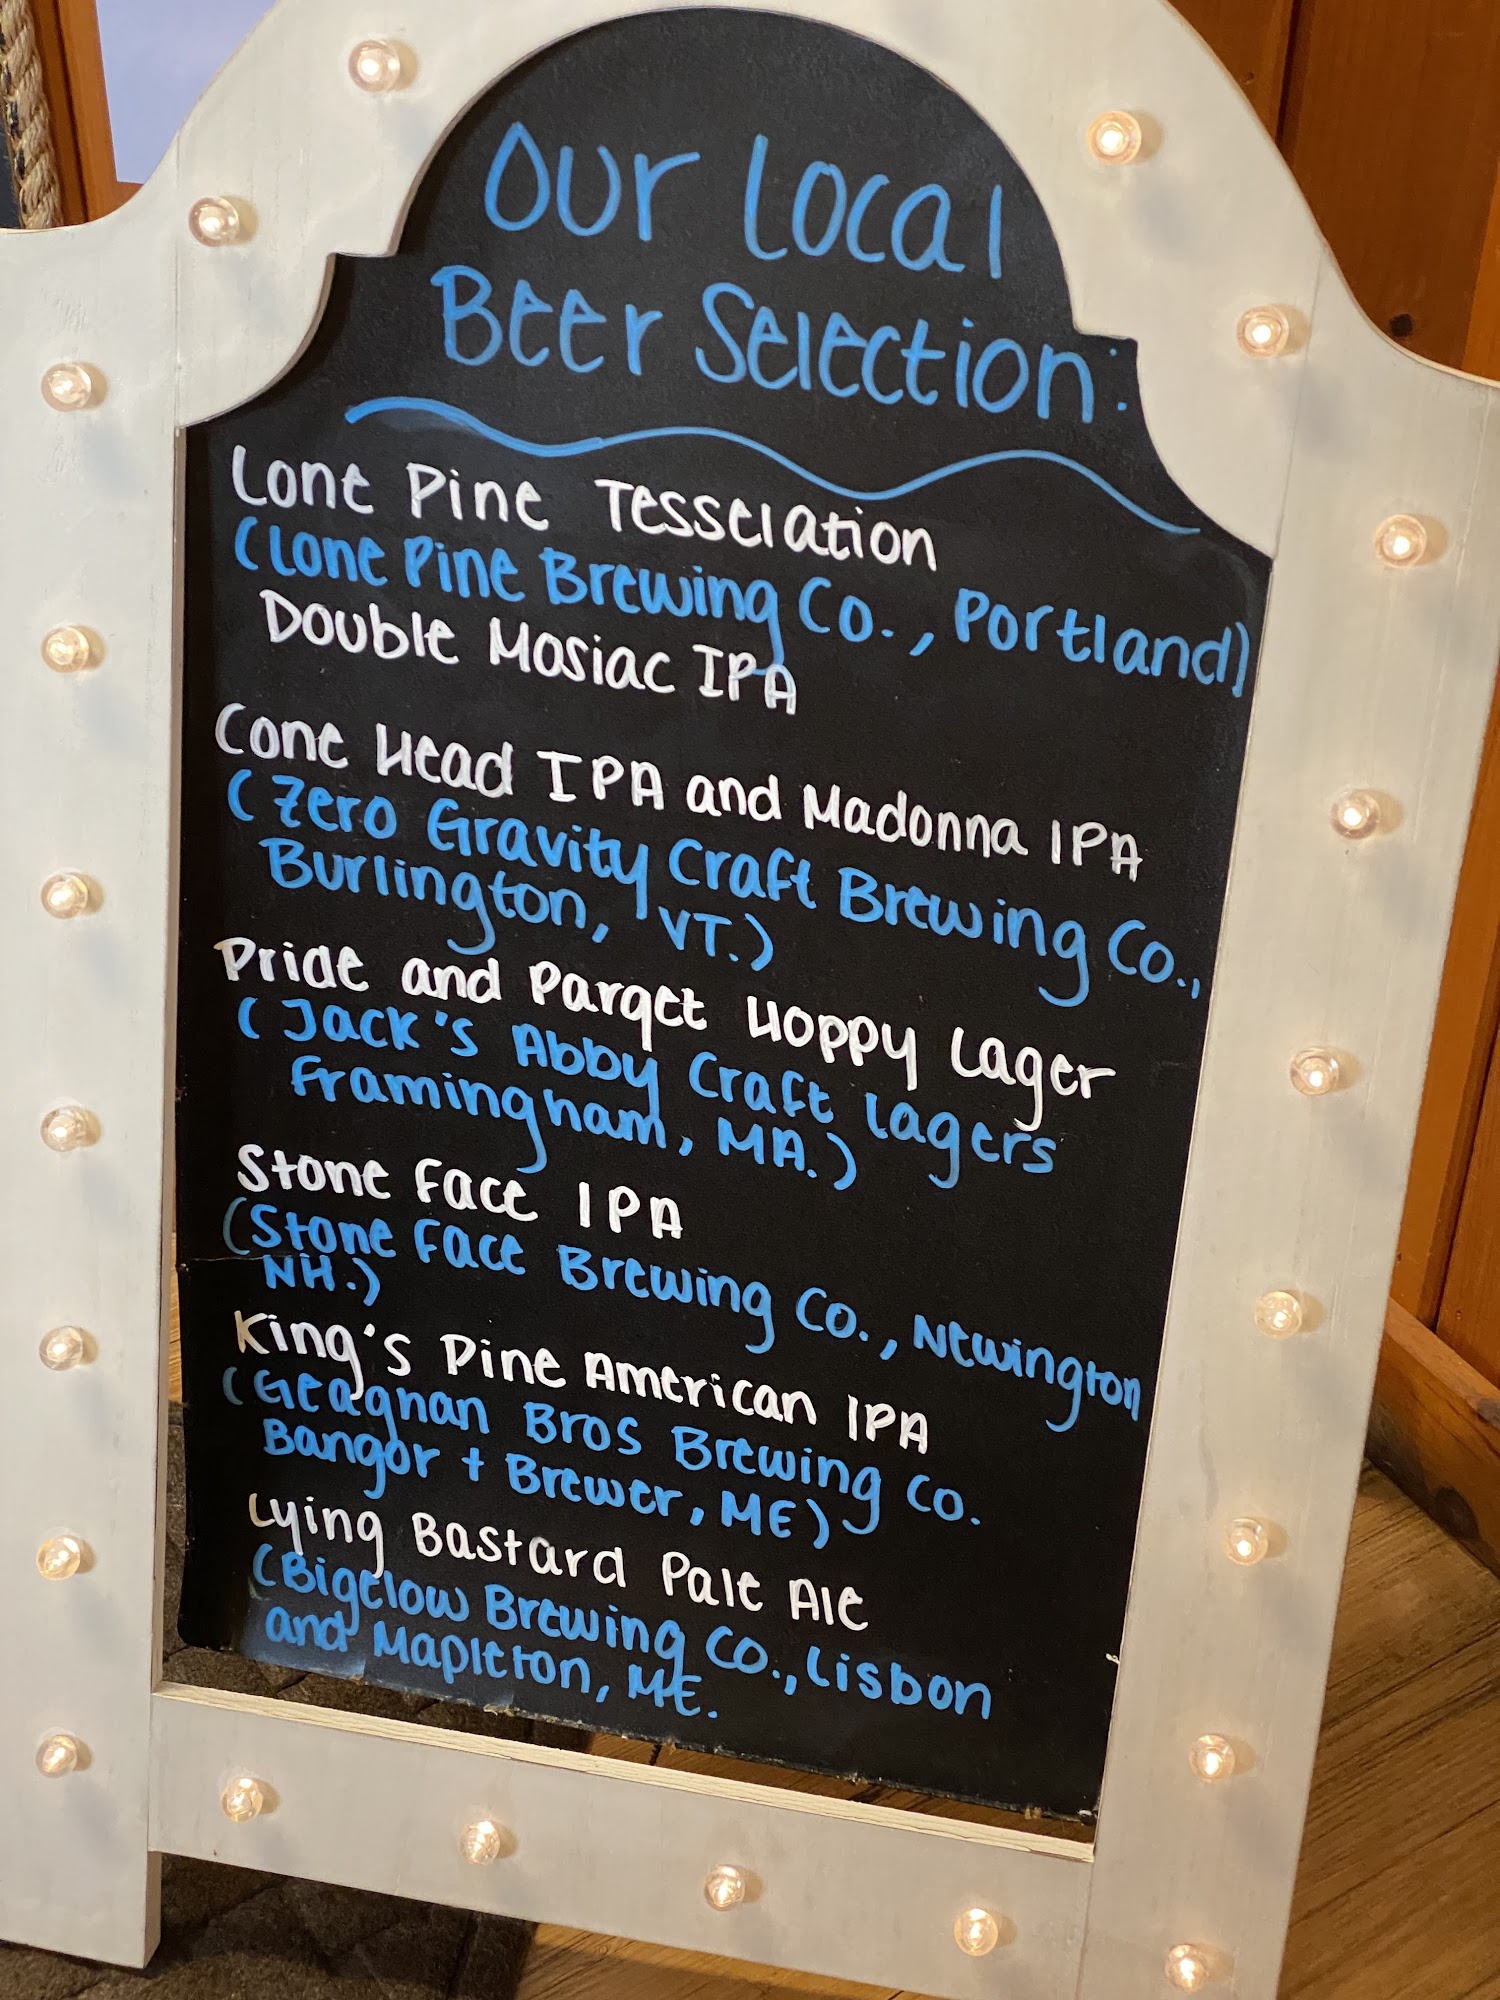 Our Local
Beer Selection:
Lone Pine Tesselation
(Lone Pine Brewing Co., Portland)
Double Mosiac IPA
Cone Head IPA and Madonna IPA
(Zero Gravity Craft Brewing Co.,
Burlington, VT.)
Pride and Parqet Hoppy Lager
(Jack's Abby Craft Lagers
Framingham, MA.)
Stone Face IPA
(Stone Face Brewing Co., Newington
NH.)
King's Pine American IPA
(Geagnan Bros Brewing Co.
Bangor + Brewer, ME)
Lying Bastard Pale Ale
(Bigelow Brewing Co., Lisbon
and Mapleton, ME.